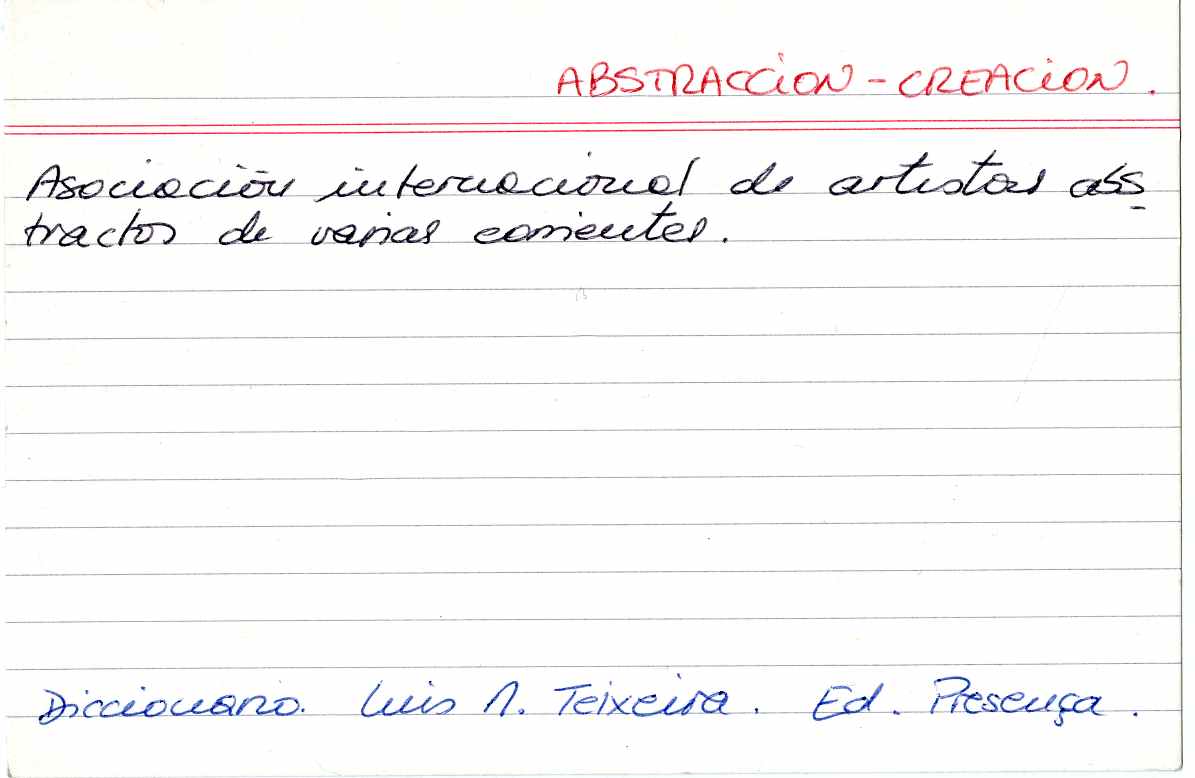 ABSTRACCION - CREACION.
Asociación internacional de artistas abs
tractos de varias corrientes.
Diccionario. Luis M. Teixeira. Ed. Presença.